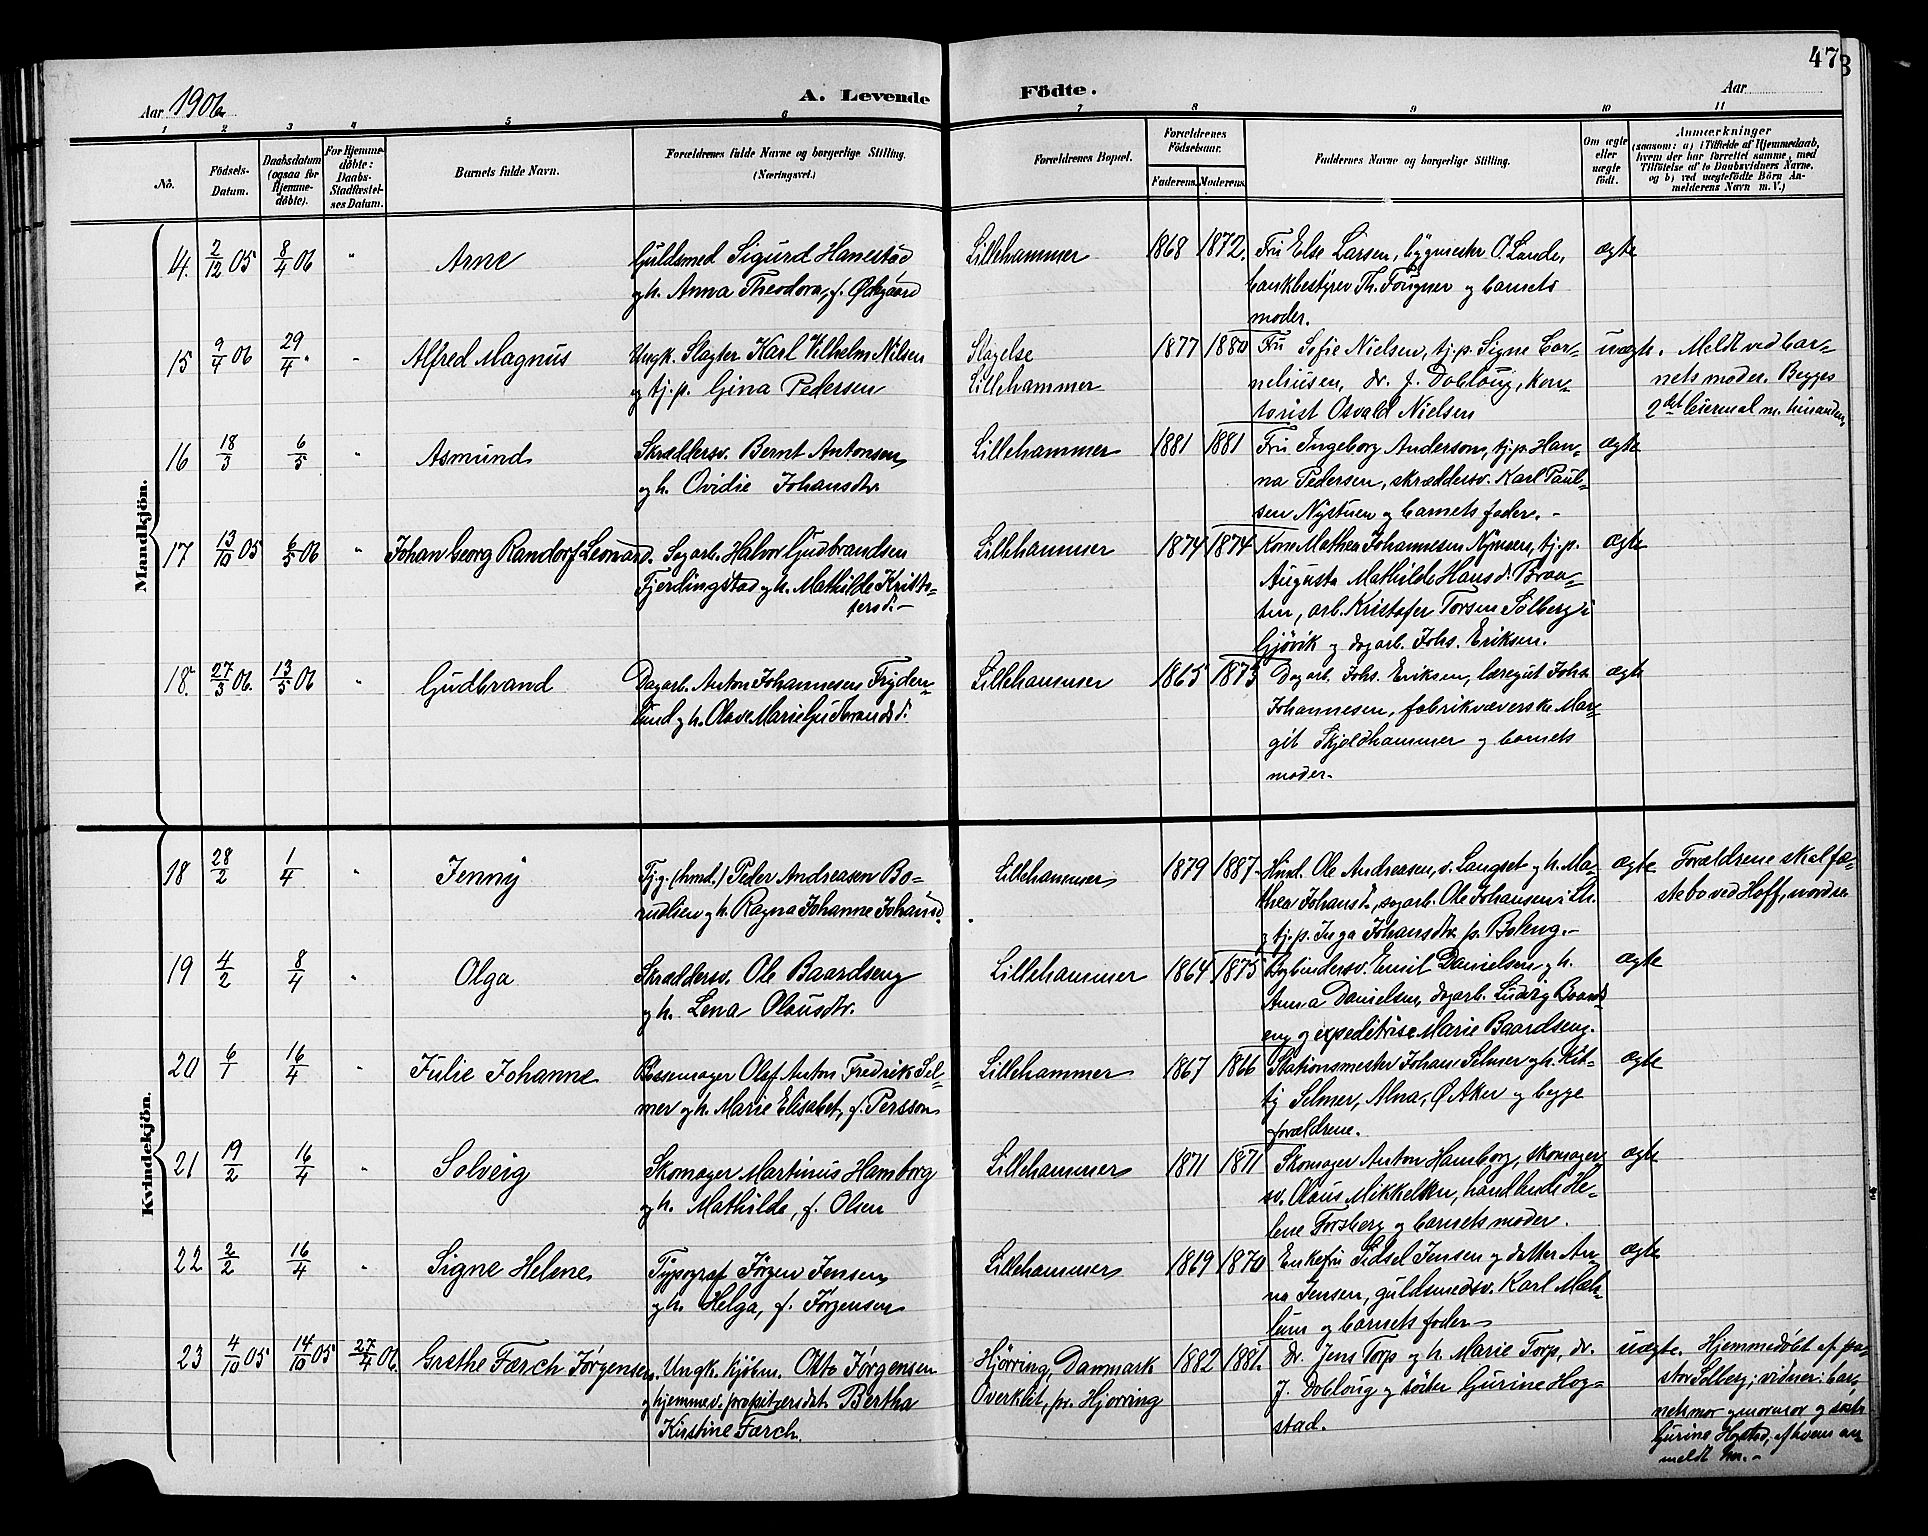 47
3
Aar 1906.
A. Levende Födte.
Aar
1 2 3 4 5 6 7 8 9 10 11
No.
Födsels-Datum.
Daabsdatum (ogsaa for Hjemme-døbte).
For Hjemme-döbte: Daabs-Stadfæstel-ses Datum.
Barnets fulde Navn.
Forældrenes fulde Navne og borgerlige Stilling.
(Næringsvei.)
Forældrenes Bopæl.
Forældrenes Födselsaar.
Faderens. Moderens.
Faddernes Navne og borgerlige Stilling.
Om ægte eller uægte födt.
Anmærkninger
(saasom: a) i Tilfælde af Hjemmedaab,
hvem der har forrettet samme, med
Tilföielse af to Daabsvidners Navne,
og b) ved uægtefödte Börn An-
melderens Navn m. V.)
Mandkjön.
14. 2/12 05 8/4 06 " Arne
Guldsmed Sigurd Hanestad
og h. Anna Theodora, f. Ødegaard
Lillehammer 1868 1872.
Fru Else Larsen, bygmester O. Lunde,
bankbestyrer Th. Fougner og barnets
moder.
ægte
15 9/4 06 29/4 " Alfred Magnus
Ungk. Slagter Karl Vilhelm Nilsen
og tj.p. Gina Pedersen
Slagelse
Lillehammer
1877 1880
Fru Sofie Nielsen, tj.p. Signe Cor-
neliusen, dr. J. Dobloug, kon-
torist Osvald Nielsen
uægte. Meldt ved bar-
nets moder. Begges
2det leiermal m. hinanden.
16 18/3 6/5 " Asmund
Skræddersv. Bernt Antonsen
og h. Ovidie Johansdtr.
Lillehammer 1881 1881
Fru Ingeborg Anderson, tj.p. Han-
na Pedersen, skræddersv. Karl Paul-
sen Nystuen og barnets fader. -
ægte
17 13/10 05 6/5 06 " Johan Georg Randorf Leonard.
Sagarb. Halvor Gudbrandsen
Fjerdingstad og h. Mathilde Kristo-
fersd. -
Lillehammer 1874 1874
Kone Mathea Johannesen Nymoen, tj.p.
Augusta Mathilde Hansd. Braa-
ten, arb. Kristofer Torsen Solberg i
Gjövik og dagarb. Johs. Eriksen.
ægte
18. 27/3 06. 13/5 06 " Gudbrand
Dagarb. Anton Johannesen Fryden-
lund og h. Olave Marie Gudbrandsd.
Lillehammer 1865 1873
Dagarb. Johs. Eriksen, læregut Johs.
Johannesen, fabrikvæverske Mar-
git Skjeldhammer og barnets
moder.
ægte
Kvindekjön.
18 28/2 1/4 " Jenny
Tjg. (hmd.) Peder Andreasen Bo-
rudlien og h. Ragna Johanne Johansd.
Lillehammer 1879 1887.
Hmd. Ole Andreasen, v. Langset og h. Ma-
thea Johansd., sagarb. Ole Johansen i Lh.
og tj.p. Inga Johansdtr. p. Boleng. -
ægte Forældrene skal fæ-
stebo ved Hoff, nordre
19 4/2 8/4 " Olga
Skræddersv. Ole Baardseng
og h. Lena Olausdtr.
Lillehammer 1864 1875
Bogbindersv. Emil Danielsen og h.
Anna Danielsen, dagarb. Ludvig Baards-
eng og expeditrise Marie Baardseng.
ægte
20 6/1 16/4 " Julie Johanne
Bøssemager Olaf Anton Fredrik Sel-
mer og h. Marie Elisabet, f. Persson
Lillehammer 1867 1866
Stationsmester Johan Selmer og h. Kit-
ty Selmer, Alna, Ø. Aker og begge
forældrene.
ægte
21 19/2 16/4 " Solveig
Skomager Martinus Hamborg
og h. Mathilde, f. Olsen
Lillehammer 1871 1871
Skomager Anton Hamborg, skomager-
sv. Olaus Mikkelsen, handlende He-
lene Forsberg og barnets moder.
ægte
22 2/2 16/4 " Signe Helene
Typograf Jørgen Jensen
og h. Helga, f. Jørgensen
Lillehammer 1869 1870
Enkefru Sidsel Jensen og datter An-
na Jensen, guldsmedsv. Karl Mæh-
lum og barnets fader
ægte
23 4/10 05 14/10 05 27/4 06. Grethe Færch Jørgensen.
Ungk. kjøbm. Otto Jørgensen
og hjemmev. propritærsdat. Bertha
Kirstine Færch.
Hjørring, Danmark
Overklit, pr. Hjørring
1882 1881.
Dr. Jens Torp og h. Marie Torp, dr.
J. Dobloug og søster Gurine Hog-
stad.
uægte. Hjemmedøbt af pa-
stor Solberg; vidner: bar-
nets mor og mormor og søster
Gurine Hogstad, af hvem an-
meldt her. -